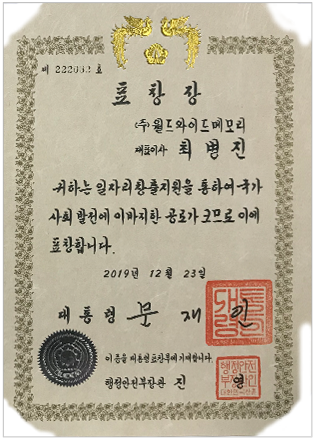 제 222082 호
표 창 장
(주)월드와이드메모리
대표이사 최병진
귀하는 일자리창출지원을 통하여 국가
사회발전에 이바지한 공로가 크므로 이에
표창합니다.
2019년 12월 23일
대통령 문 재 인
이 증을 대통령표창부에 기재합니다.
행정안전부장관 진 영